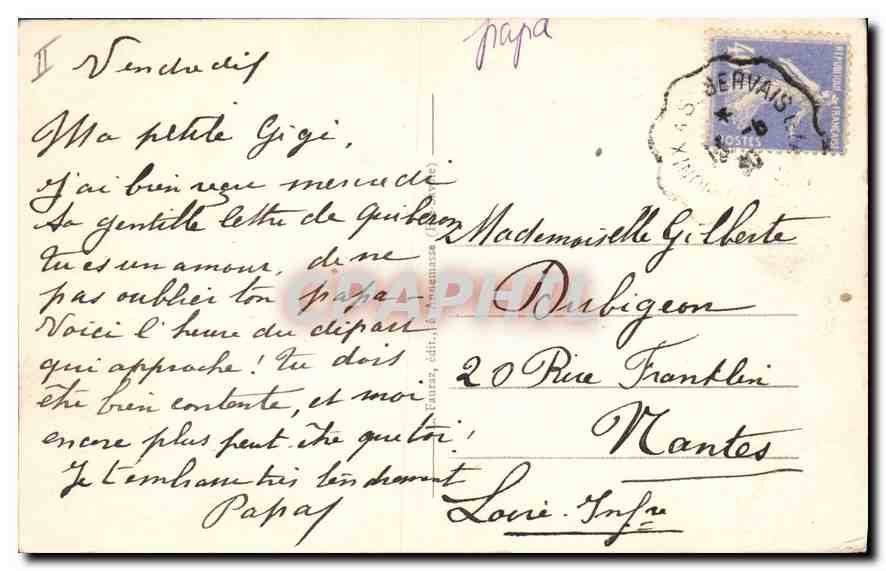 papa
II
Vendredi
Ma petite Gigi,
J'ai bien reçu mercredi
ta gentille lettre de Quiberon
tu es un amour, de ne
pas oublier ton papa -
Voici l'heure du départ
qui approche! tu dois
être bien contente, et moi
encore plus peut-être que toi!
Je t'embrasse très tendrement
Papa
Fauraz, édit., Annemasse
Mademoiselle Gilberte
Dubigeon
20 Rue Franklin
Nantes
Loire-Infre
RÉPUBLIQUE FRANÇAISE
POSTES
GERVAIS
CPAPHIL